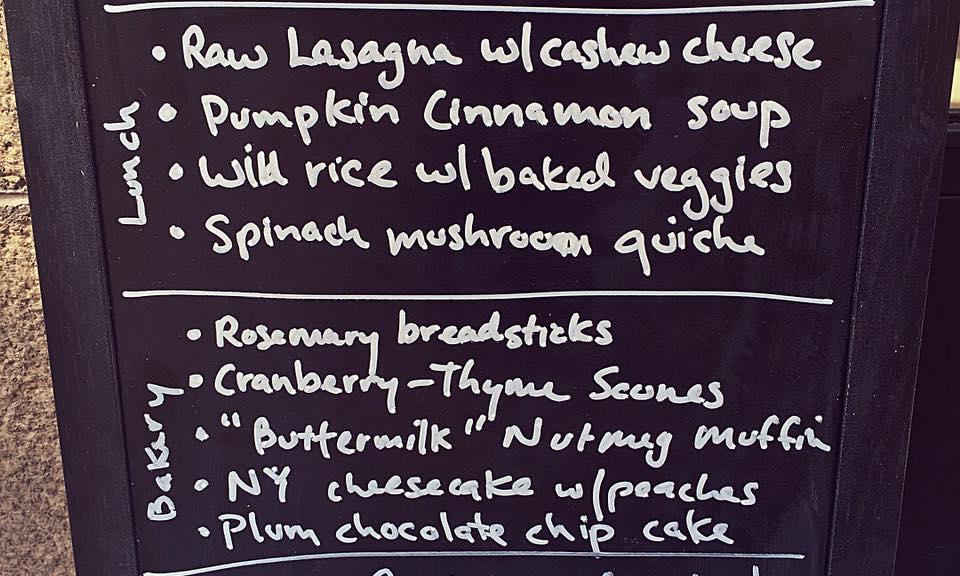 Lunch
• Raw Lasagna w/cashew cheese
• Pumpkin Cinnamon soup
• Wild rice w/ baked veggies
• Spinach mushroom quiche
Bakery
• Rosemary breadsticks
• Cranberry-Thyme Scones
• "Buttermilk" Nutmeg muffin
• NY cheesecake w/peaches
• Plum chocolate chip cake